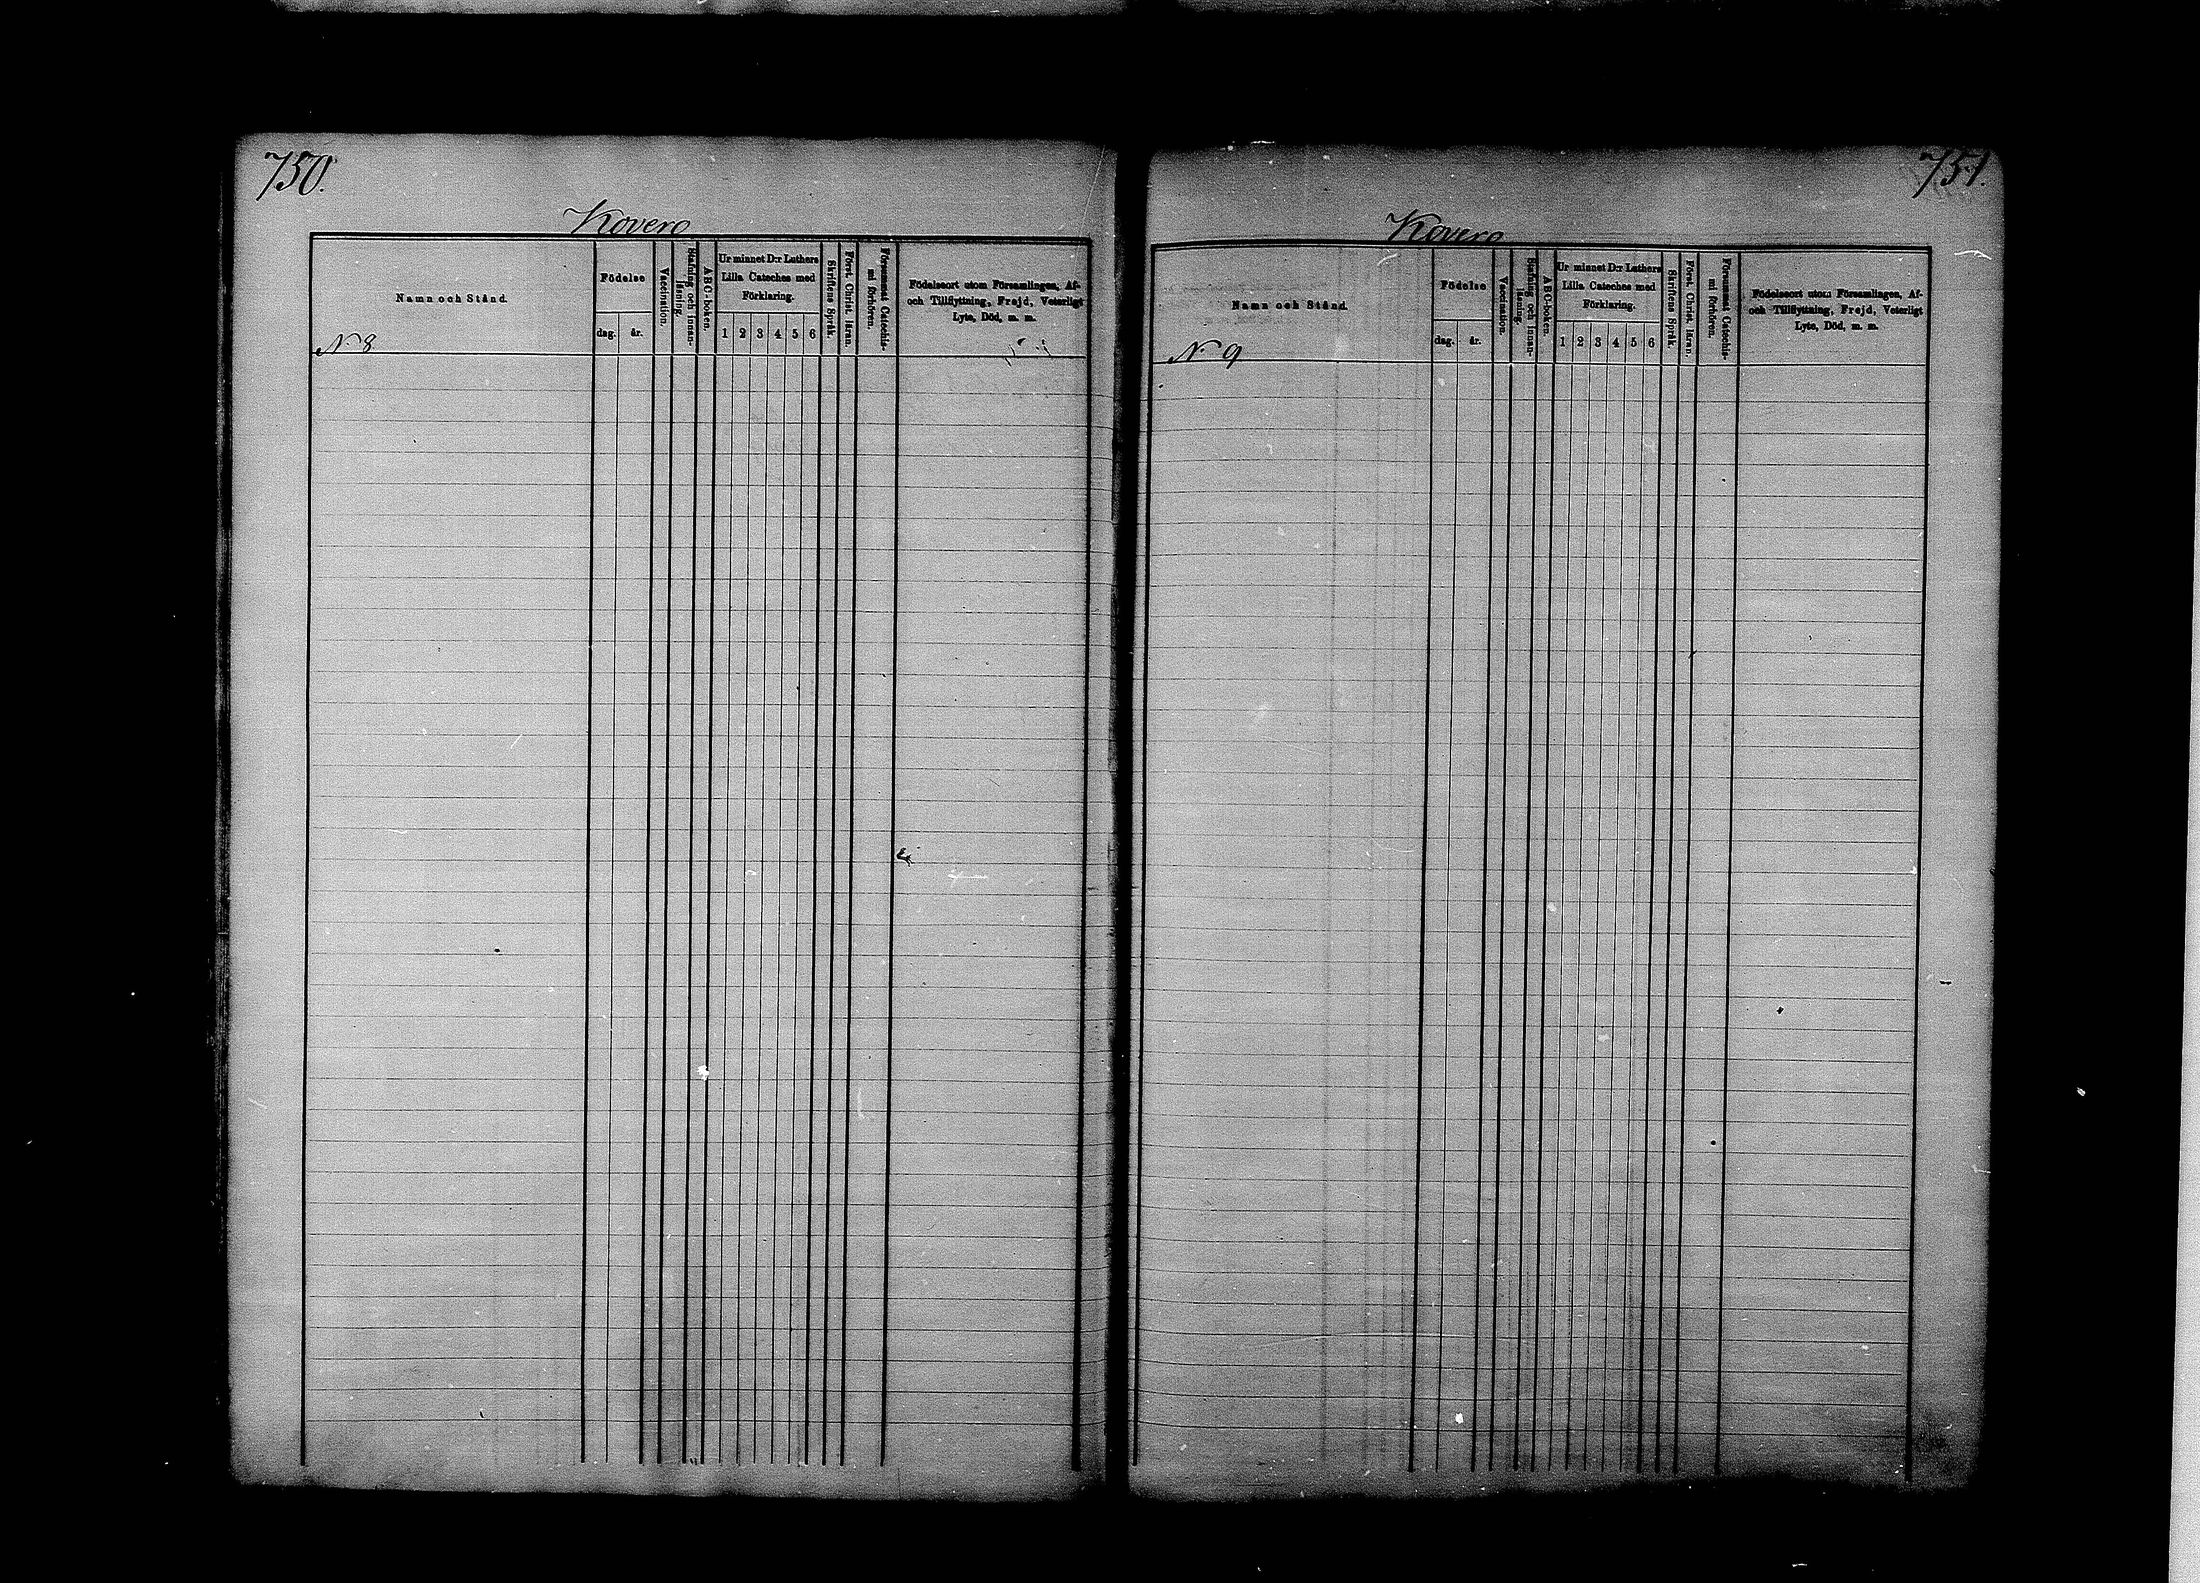 750.
Kovero
Namn och Stånd.
Födelse
dag. år.
Vaccination.
Stafning och innan-
läsning.
ABC-boken.
Ur minnet D:r Luthers
Lilla Cateches med
Förklaring.
1 2 3 4 5 6
Skriftens Språk.
Först. Christ. läran.
Försummat Catechis-
mi förhören.
Födelseort utom Församlingen, Af-
och Tillflyttning, Frejd, Veterligt
Lyte, Död, m. m.
N 8
751.
Kovero
Namn och Stånd.
Födelse
dag. år.
Vaccination.
Stafning och innan-
läsning.
ABC-boken.
Ur minnet D:r Luthers
Lilla Cateches med
Förklaring.
1 2 3 4 5 6
Skriftens Språk.
Först. Christ. läran.
Försummat Catechis-
mi förhören.
Födelseort utom Församlingen, Af-
och Tillflyttning, Frejd, Veterligt
Lyte, Död, m. m.
N. 9